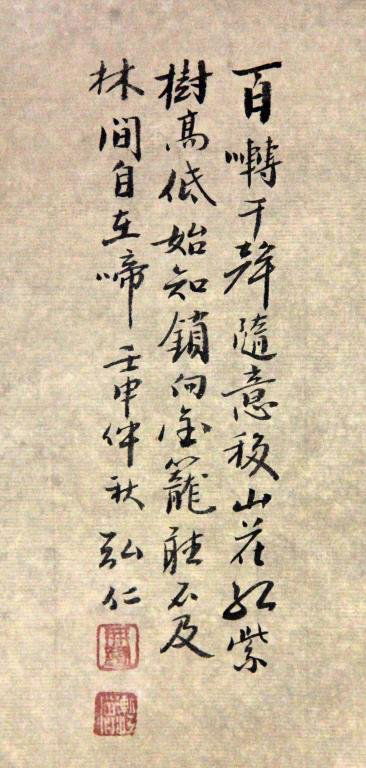 百囀千聲隨意移山花紅紫
樹高低始知鎖向金籠聽不及
林間自在啼 壬申仲秋 弘仁